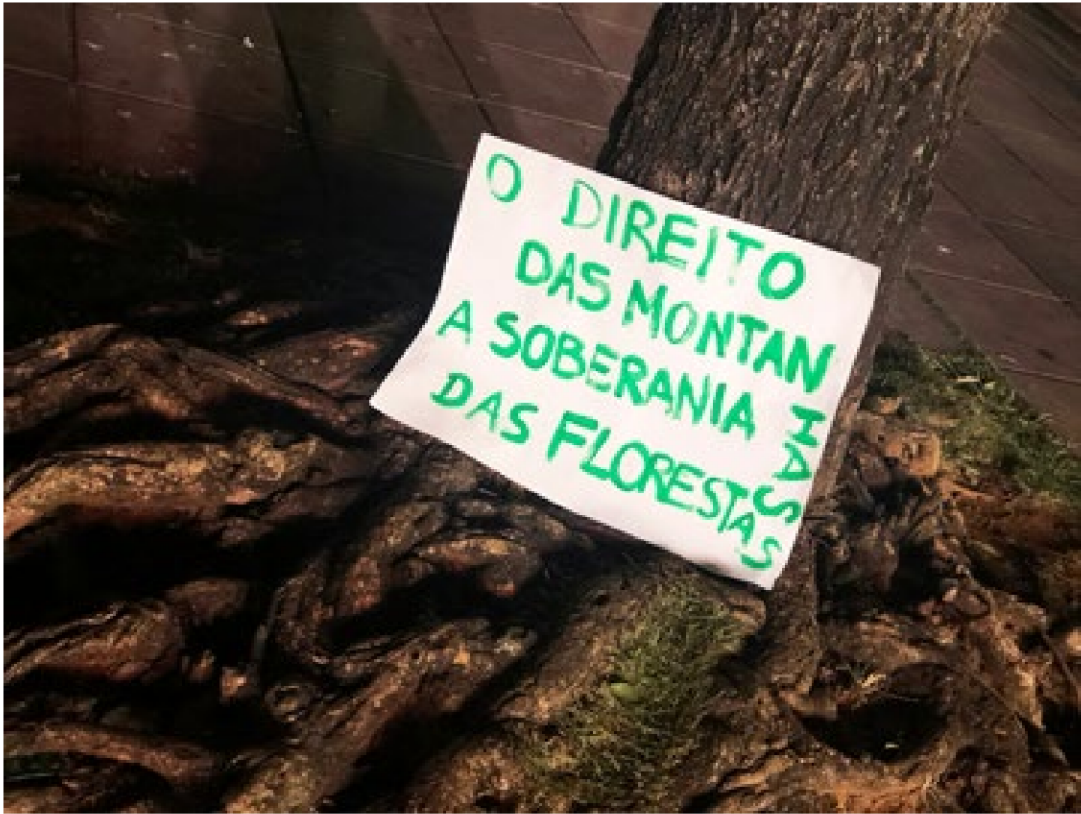 O DIREITO
DAS MONTANHAS
A SOBERANIA
DAS FLORESTAS